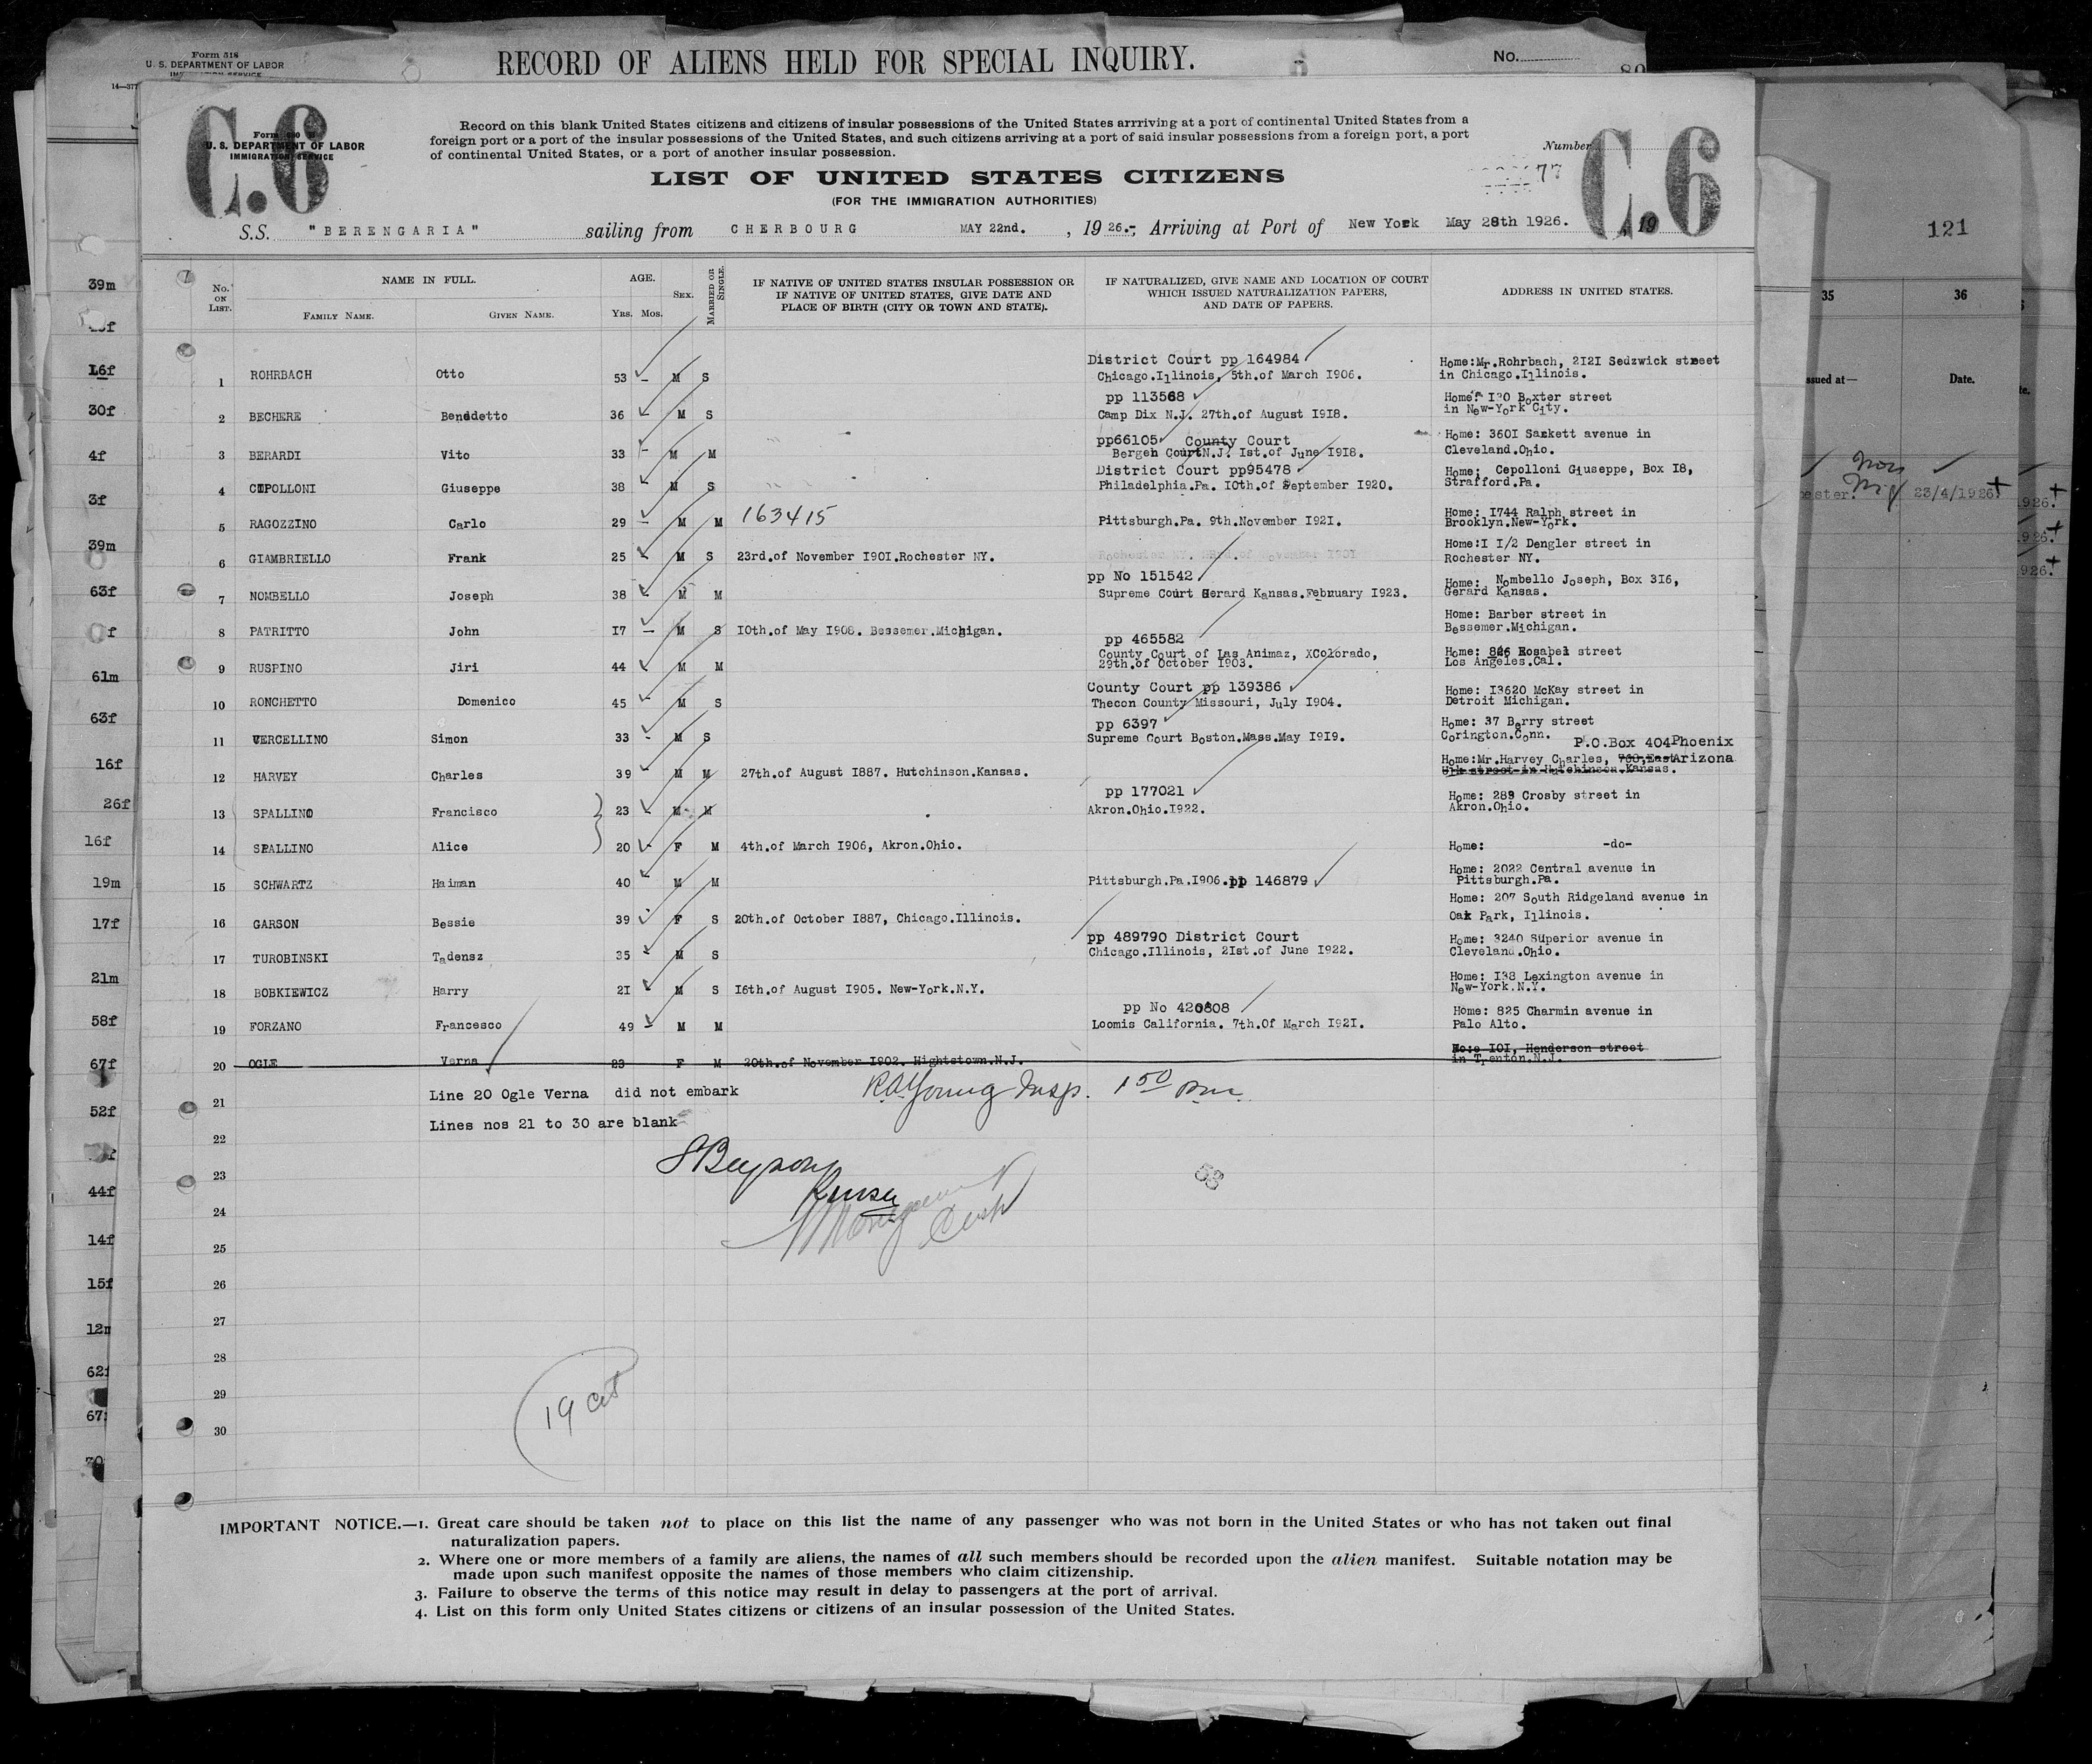 Form 518
U. S. DEPARTMENT OF LABOR
RECORD OF ALIENS HELD FOR SPECIAL INQUIRY.
No.
14—377
C.6
Form 630 B
U. S. DEPARTMENT OF LABOR
IMMIGRATION SERVICE
Record on this blank United States citizens and citizens of insular possessions of the United States arrriving at a port of continental United States from a
foreign port or a port of the insular possessions of the United States, and such citizens arriving at a port of said insular possessions from a foreign port, a port
of continental United States, or a port of another insular possession.
Number
77
C.6
LIST OF UNITED STATES CITIZENS
(FOR THE IMMIGRATION AUTHORITIES)
S.S. "BERENGARIA" sailing from CHERBOURG MAY 22nd. , 19 26.-; Arriving at Port of New York May 28th 1926. , 19
121
No. ON LIST. NAME IN FULL. AGE. SEX. MARRIED OR SINGLE. IF NATIVE OF UNITED STATES INSULAR POSSESSION OR IF NATIVE OF UNITED STATES, GIVE DATE AND PLACE OF BIRTH (CITY OR TOWN AND STATE). IF NATURALIZED, GIVE NAME AND LOCATION OF COURT WHICH ISSUED NATURALIZATION PAPERS, AND DATE OF PAPERS. ADDRESS IN UNITED STATES.
FAMILY NAME. GIVEN NAME. YRS. MOS.
1 ROHRBACH Otto 53 - M S District Court pp 164984 Chicago.Illinois, 5th.of March I906. Home:Mr.Rohrbach, 2I2I Sedzwick street in Chicago.Illinois.
2 BECHERE Benedetto 36 - M S pp 113568 Camp Dix N.J. 27th.of August I9I8. Home: I30 Boxter street in New-York City.
3 BERARDI Vito 33 - M M pp66105 County Court Bergen Court N.J. Ist.of June I9I8. Home: 360I Sackett avenue in Cleveland.Ohio.
4 CIPOLLONI Giuseppe 38 M S District Court pp95478 Philadelphia.Pa. I0th.of September I920. Home: Cepolloni Giuseppe, Box I8, Strafford.Pa.
5 RAGOZZINO Carlo 29 - M M 163415 Pittsburgh.Pa. 9th.November I92I. Home: I744 Ralph street in Brooklyn.New-York.
6 GIAMBRIELLO Frank 25 - M S 23rd.of November I90I.Rochester NY. Home:I I/2 Dengler street in Rochester NY.
7 NOMBELLO Joseph 38 - M M pp No 151542 Supreme Court Gerard Kansas.February I923. Home: Nombello Joseph, Box 3I6, Gerard Kansas.
8 PATRITTO John I7 - M S I0th.of May I908. Bessemer.Michigan. Home: Barber street in Bessemer.Michigan.
9 RUSPINO Jiri 44 - M M pp 465582 County Court of Las Animaz, XColorado, 29th.of October I903. Home: 826 Rosabel street Los Angeles.Cal.
10 RONCHETTO Domenico 45 - M S County Court pp 139386 Thecon County Missouri, July I904. Home: I3620 McKay street in Detroit Michigan.
11 VERCELLINO Simon 33 - M S pp 6397 Supreme Court Boston.Mass.May I9I9. Home: 37 Berry street Corington.Conn.
12 HARVEY Charles 39 - M M 27th.of August I887. Hutchinson.Kansas. P.O.Box 404 Phoenix Arizona Home:Mr.Harvey Charles, 730,East street in Hutchinson.Kansas.
13 SPALLINO Francisco 23 - M M pp 177021 Akron.Ohio.I922. Home: 289 Crosby street in Akron.Ohio.
14 SPALLINO Alice 20 - F M 4th.of March I906, Akron.Ohio. Home: -do-
15 SCHWARTZ Haiman 40 M M Pittsburgh.Pa.I906.pp 146879 Home: 2022 Central avenue in Pittsburgh.Pa.
16 GARSON Bessie 39 F S 20th.of October I887, Chicago.Illinois. Home: 207 South Ridgeland avenue in Oak Park, Illinois.
17 TUROBINSKI Tadensz 35 M S pp 489790 District Court Chicago.Illinois, 2Ist.of June I922. Home: 3240 Superior avenue in Cleveland.Ohio.
18 BOBKIEWICZ Harry 2I M S I6th.of August I905. New-York.N.Y. Home: I38 Lexington avenue in New-York.N.Y.
19 FORZANO Francesco 49 - M M pp No 420808 Loomis California. 7th.Of March I92I. Home: 825 Charmin avenue in Palo Alto.
20 OGLE Verna 23 F M 20th.of November I902. Hightstown.N.J. Home I0I, Henderson street in Trenton.N.J.
21 Line 20 Ogle Verna did not embark R.A.Young Insp. 1 50 pm
Lines nos 21 to 30 are blank
22
23
24
25
26
27
28
29
30
19 cit
IMPORTANT NOTICE.—1. Great care should be taken not to place on this list the name of any passenger who was not born in the United States or who has not taken out final
naturalization papers.
2. Where one or more members of a family are aliens, the names of all such members should be recorded upon the alien manifest. Suitable notation may be
made upon such manifest opposite the names of those members who claim citizenship.
3. Failure to observe the terms of this notice may result in delay to passengers at the port of arrival.
4. List on this form only United States citizens or citizens of an insular possession of the United States.
39m
16f
30f
4f
3f
39m
63f
61m
63f
16f
26f
16f
19m
17f
21m
58f
67f
52f
44f
14f
15f
35 36
Date.
23/4/1926